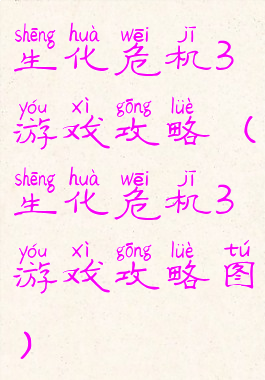 shēng huà wēi jī
生化危机3
yóu xì gōng lüè
游戏攻略（
shēng huà wēi jī
生化危机3
yóu xì gōng lüè tú
游戏攻略图
）